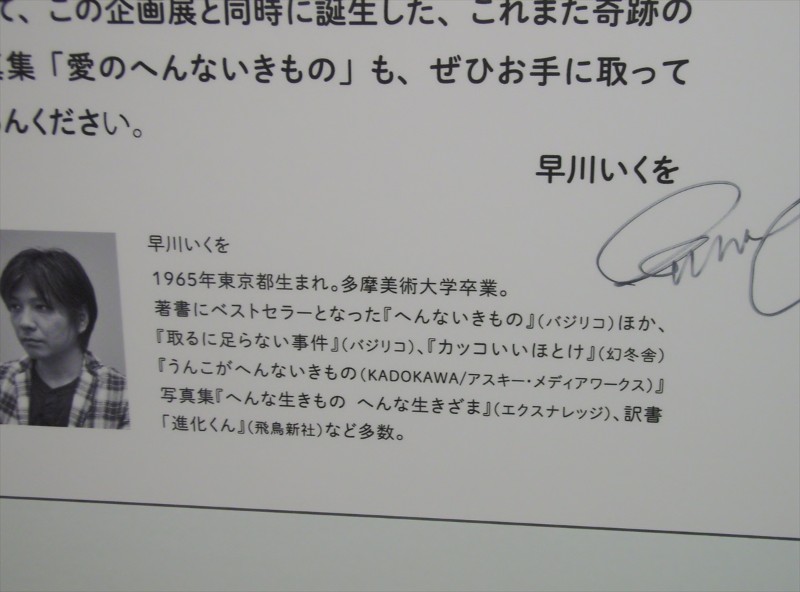 て、この企画展と同時に誕生した、これまた奇跡の
真集「愛のへんないきもの」も、ぜひお手に取って
んください。
早川いくを
早川いくを
1965年東京都生まれ。多摩美術大学卒業。
著書にベストセラーとなった『へんないきもの』(バジリコ)ほか、
『取るに足らない事件』(バジリコ)、『カッコいいほとけ』(幻冬舎)
『うんこがへんないきもの(KADOKAWA/アスキー・メディアワークス)』
写真集『へんな生きもの へんな生きざま』(エクスナレッジ)、訳書
「進化くん』(飛鳥新社)など多数。